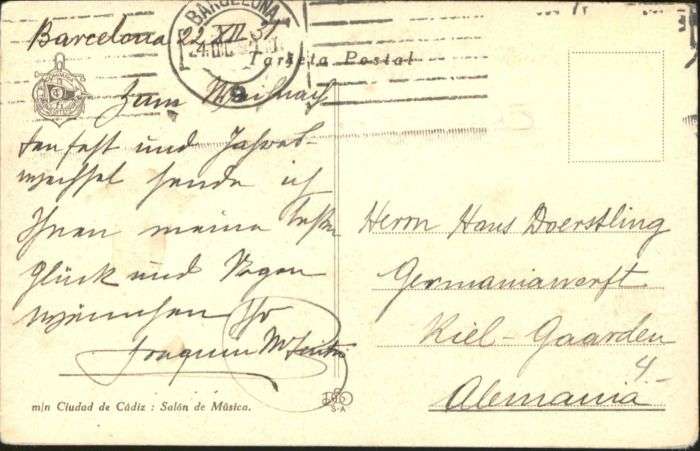 Barcelona 22 XII
BARCELONA
Tarjeta Postal
Zum Weihnach
tenfest und Jahres-
wechsel sende ich
Ihnen meine besten
Glück und Segen
wünschen Ihr
Joaquin
Herrn Hans Doerstling
Germaniawerft
Kiel-Gaarden
4
Alemania
m/n Ciudad de Cádiz : Salón de Música.
S-A